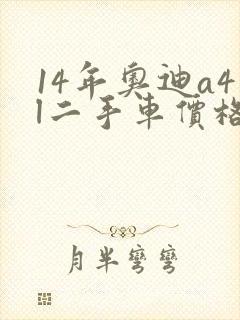 14年奧迪a4
l二手車價格
月半彎彎